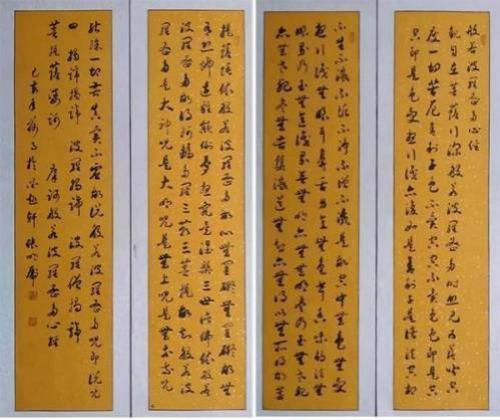 般若波羅蜜多心經
觀自在菩薩行深般若波羅蜜多時照見五蘊皆空
度一切苦厄舍利子色不異空空不異色色即是空
空即是色受想行識亦復如是舍利子是諸法空相
不生不滅不垢不淨不增不減是故空中無色無受
想行識無眼耳鼻舌身意無色聲香味觸法無
眼界乃至無意識界無無明亦無無明盡乃至無老死
亦無老死盡無苦集滅道無智亦無得以無所得故菩
提薩埵依般若波羅蜜多故心無罣礙無罣礙故無
有恐怖遠離顛倒夢想究竟涅槃三世諸佛依般若
波羅蜜多故得阿耨多羅三藐三菩提故知般若波
羅蜜多是大神咒是大明咒是無上咒是無等等咒
能除一切苦真實不虛故說般若波羅蜜多咒即說咒
曰 揭諦揭諦 波羅揭諦 波羅僧揭諦
菩提薩婆訶 摩訶般若波羅蜜多心經
己亥年 於 軒